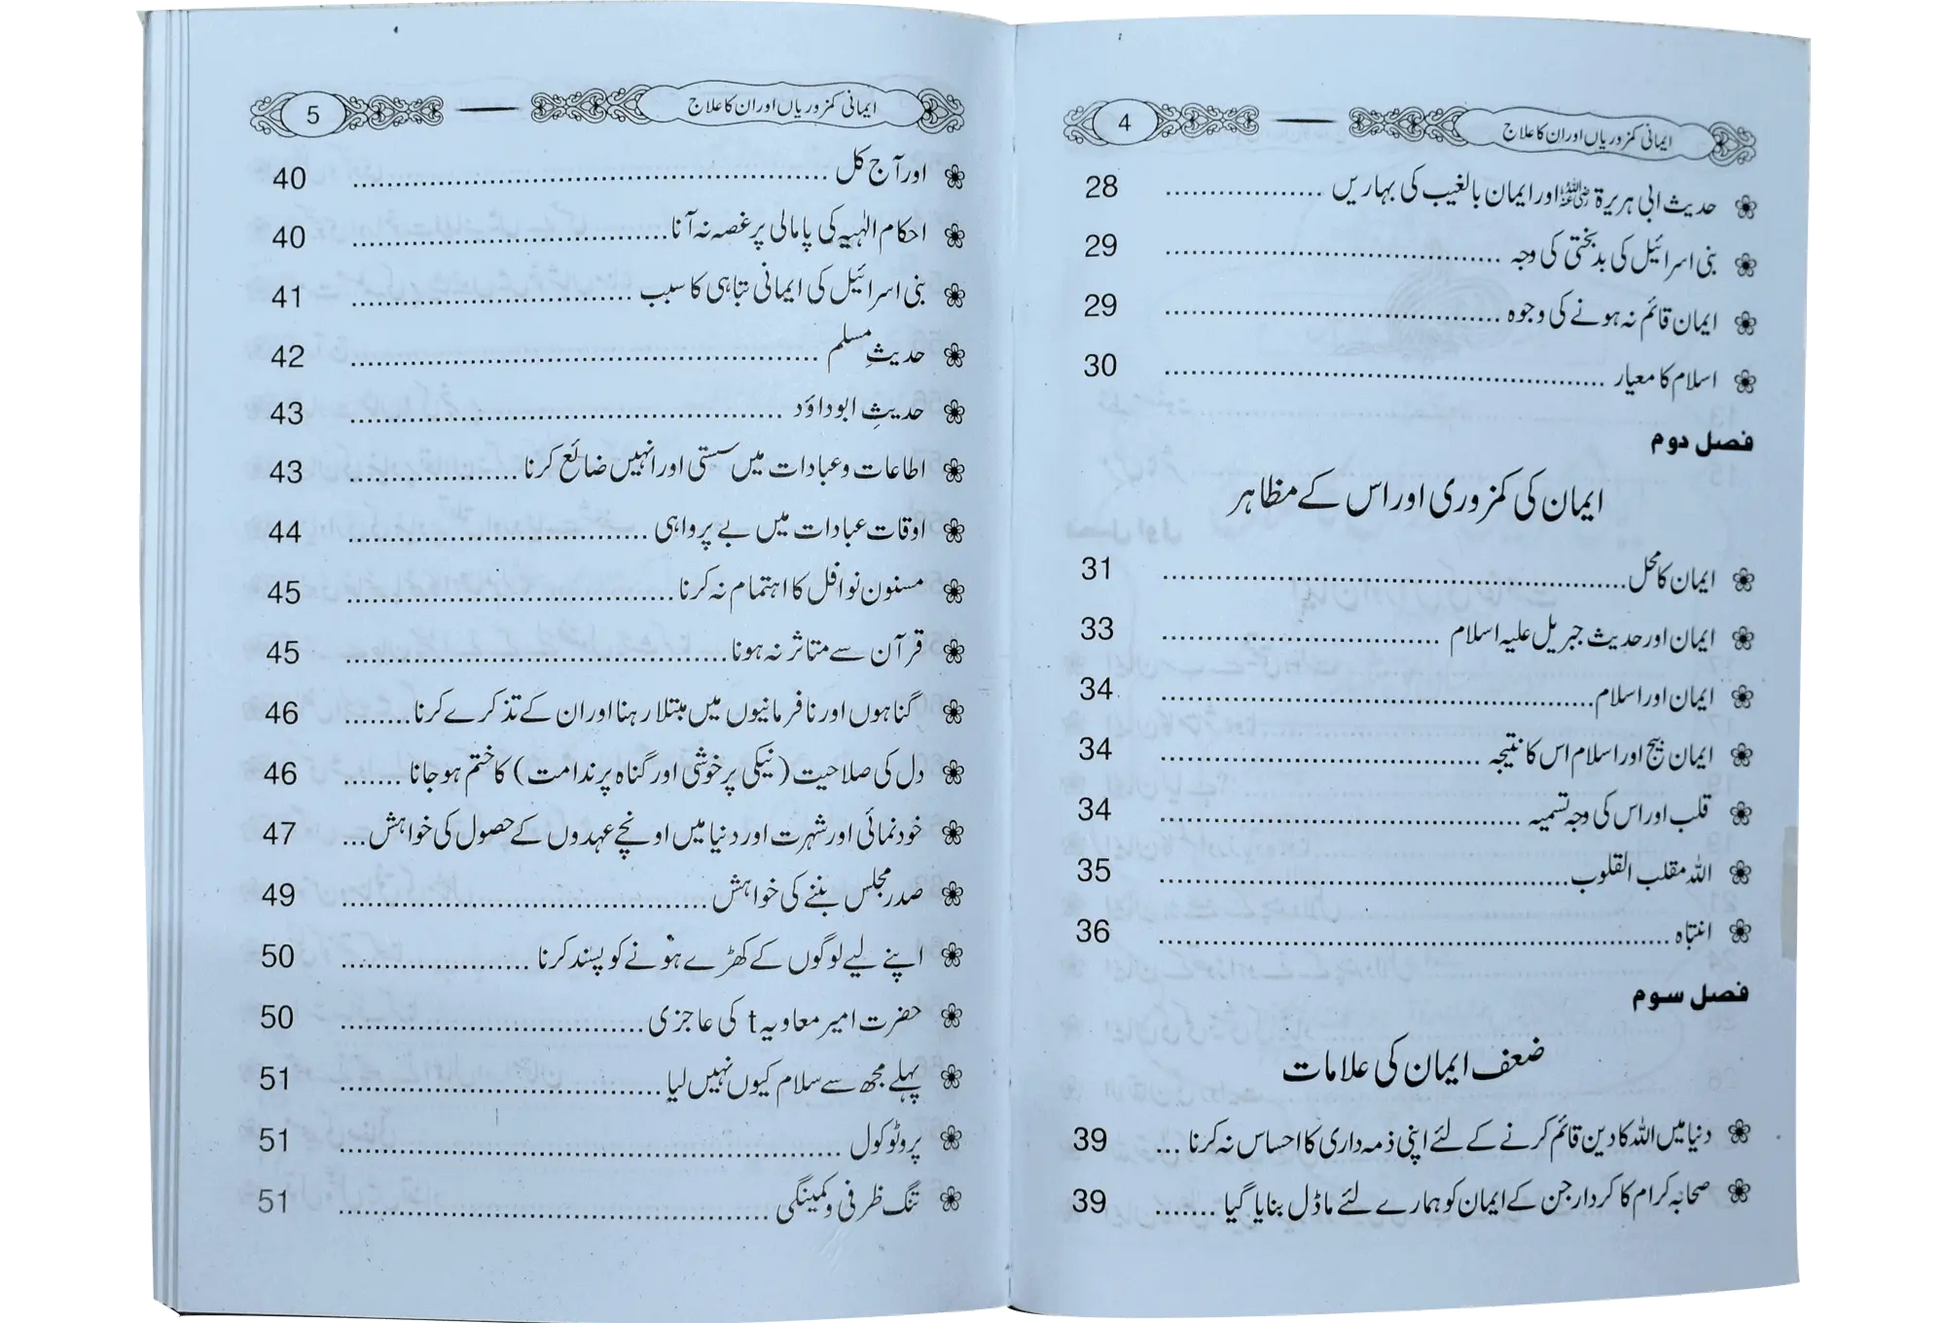 ایمانی کمزوریاں اور ان کا علاج 4
حدیث ابی ہریرۃ رضی اللہ عنہ اور ایمان بالغیب کی بہاریں ................ 28
بنی اسرائیل کی بدبختی کی وجہ ................ 29
ایمان قائم نہ ہونے کی وجوہ ................ 29
اسلام کا معیار ................ 30
فصل دوم
ایمان کی کمزوری اور اس کے مظاہر
ایمان کا محل ................ 31
ایمان اور حدیث جبریل علیہ اسلام ................ 33
ایمان اور اسلام ................ 34
ایمان بیج اور اسلام اس کا نتیجہ ................ 34
قلب اور اس کی وجہ تسمیہ ................ 34
اللہ مقلب القلوب ................ 35
انتباہ ................ 36
فصل سوم
ضعف ایمان کی علامات
دنیا میں اللہ کا دین قائم کرنے کے لئے اپنی ذمہ داری کا احساس نہ کرنا ... 39
صحابہ کرام کا کردار جن کے ایمان کو ہمارے لئے ماڈل بنایا گیا ....... 39
ایمانی کمزوریاں اور ان کا علاج 5
اور آج کل ................ 40
احکام الٰہیہ کی پامالی پر غصہ نہ آنا ................ 40
بنی اسرائیل کی ایمانی تباہی کا سبب ................ 41
حدیثِ مسلم ................ 42
حدیثِ ابوداؤد ................ 43
اطاعات و عبادات میں سستی اور انہیں ضائع کرنا ................ 43
اوقات عبادات میں بے پرواہی ................ 44
مسنون نوافل کا اہتمام نہ کرنا ................ 45
قرآن سے متاثر نہ ہونا ................ 45
گناہوں اور نافرمانیوں میں مبتلا رہنا اور ان کے تذکرے کرنا ........ 46
دل کی صلاحیت (نیکی پر خوشی اور گناہ پر ندامت) کا ختم ہو جانا ....... 46
خودنمائی اور شہرت اور دنیا میں اونچے عہدوں کے حصول کی خواہش ... 47
صدر مجلس بننے کی خواہش ................ 49
اپنے لیے لوگوں کے کھڑے ہونے کو پسند کرنا ................ 50
حضرت امیر معاویہ t کی عاجزی ................ 50
پہلے مجھ سے سلام کیوں نہیں لیا ................ 51
پروٹوکول ................ 51
تنگ ظرفی و کمینگی ................ 51